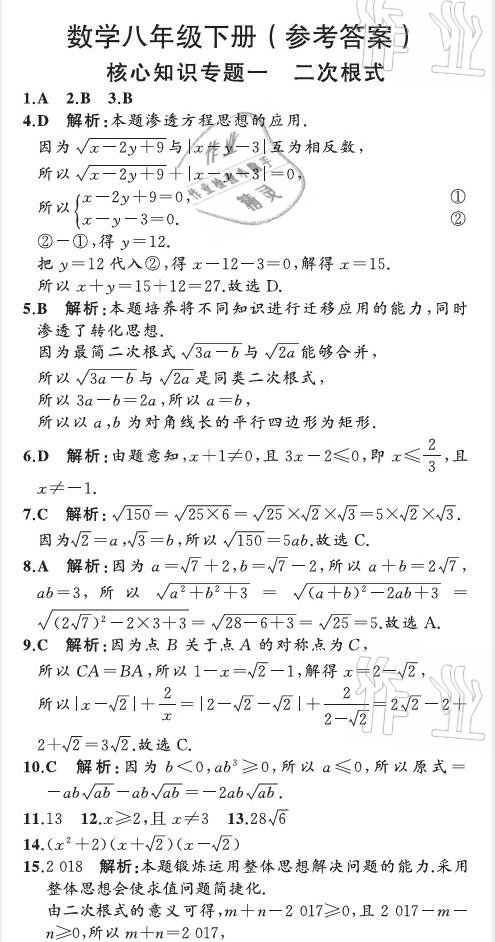 数学八年级下册(参考答案)
核心知识专题一 二次根式
1.A 2.B 3.B
4.D 解析:本题渗透方程思想的应用.
因为√(x-2y+9)与|x-y-3|互为相反数,
所以√(x-2y+9)+|x-y-3|=0,
所以{x-2y+9=0, ①
x-y-3=0. ②
②-①,得 y=12.
把 y=12 代入②,得 x-12-3=0,解得 x=15.
所以 x+y=15+12=27.故选 D.
5.B 解析:本题培养将不同知识进行迁移应用的能力,同时
渗透了转化思想.
因为最简二次根式√(3a-b)与√(2a)能够合并,
所以√(3a-b)与√(2a)是同类二次根式,
所以 3a-b=2a,所以 a=b,
所以以 a,b 为对角线长的平行四边形为矩形.
6.D 解析:由题意知,x+1≠0,且 3x-2≤0,即 x≤2/3,且
x≠-1.
7.C 解析:√150=√(25×6)=√25×√2×√3=5×√2×√3.
因为√2=a,√3=b,所以√150=5ab.故选 C.
8.A 解析:因为 a=√7+2,b=√7-2,所以 a+b=2√7,
ab=3,所以 √(a²+b²+3) = √((a+b)²-2ab+3) =
√((2√7)²-2×3+3)=√(28-6+3)=√25=5.故选 A.
9.C 解析:因为点 B 关于点 A 的对称点为 C,
所以 CA=BA,所以 1-x=√2-1,解得 x=2-√2,
所以|x-√2|+2/x=|2-√2-√2|+2/(2-√2)=2√2-2+
2+√2=3√2.故选 C.
10.C 解析:因为 b<0,ab³≥0,所以 a≤0,所以原式=
-ab√(ab)-ab√(ab)=-2ab√(ab).
11.13 12.x≥2,且 x≠3 13.28√6
14.(x²+2)(x+√2)(x-√2)
15.2 018 解析:本题锻炼运用整体思想解决问题的能力.采用
整体思想会使求值问题简捷化.
由二次根式的意义可得,m+n-2 017≥0,且 2 017-m-
n≥0,所以 m+n=2 017,
作业
作业检查小助手
精灵
作业